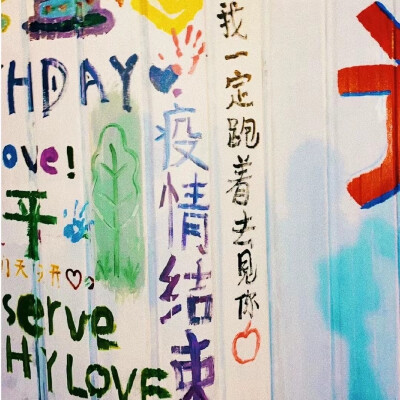 HDAY
ove!
平
天 开
serve
HY LOVE
疫情结束
我一定跑着去见你